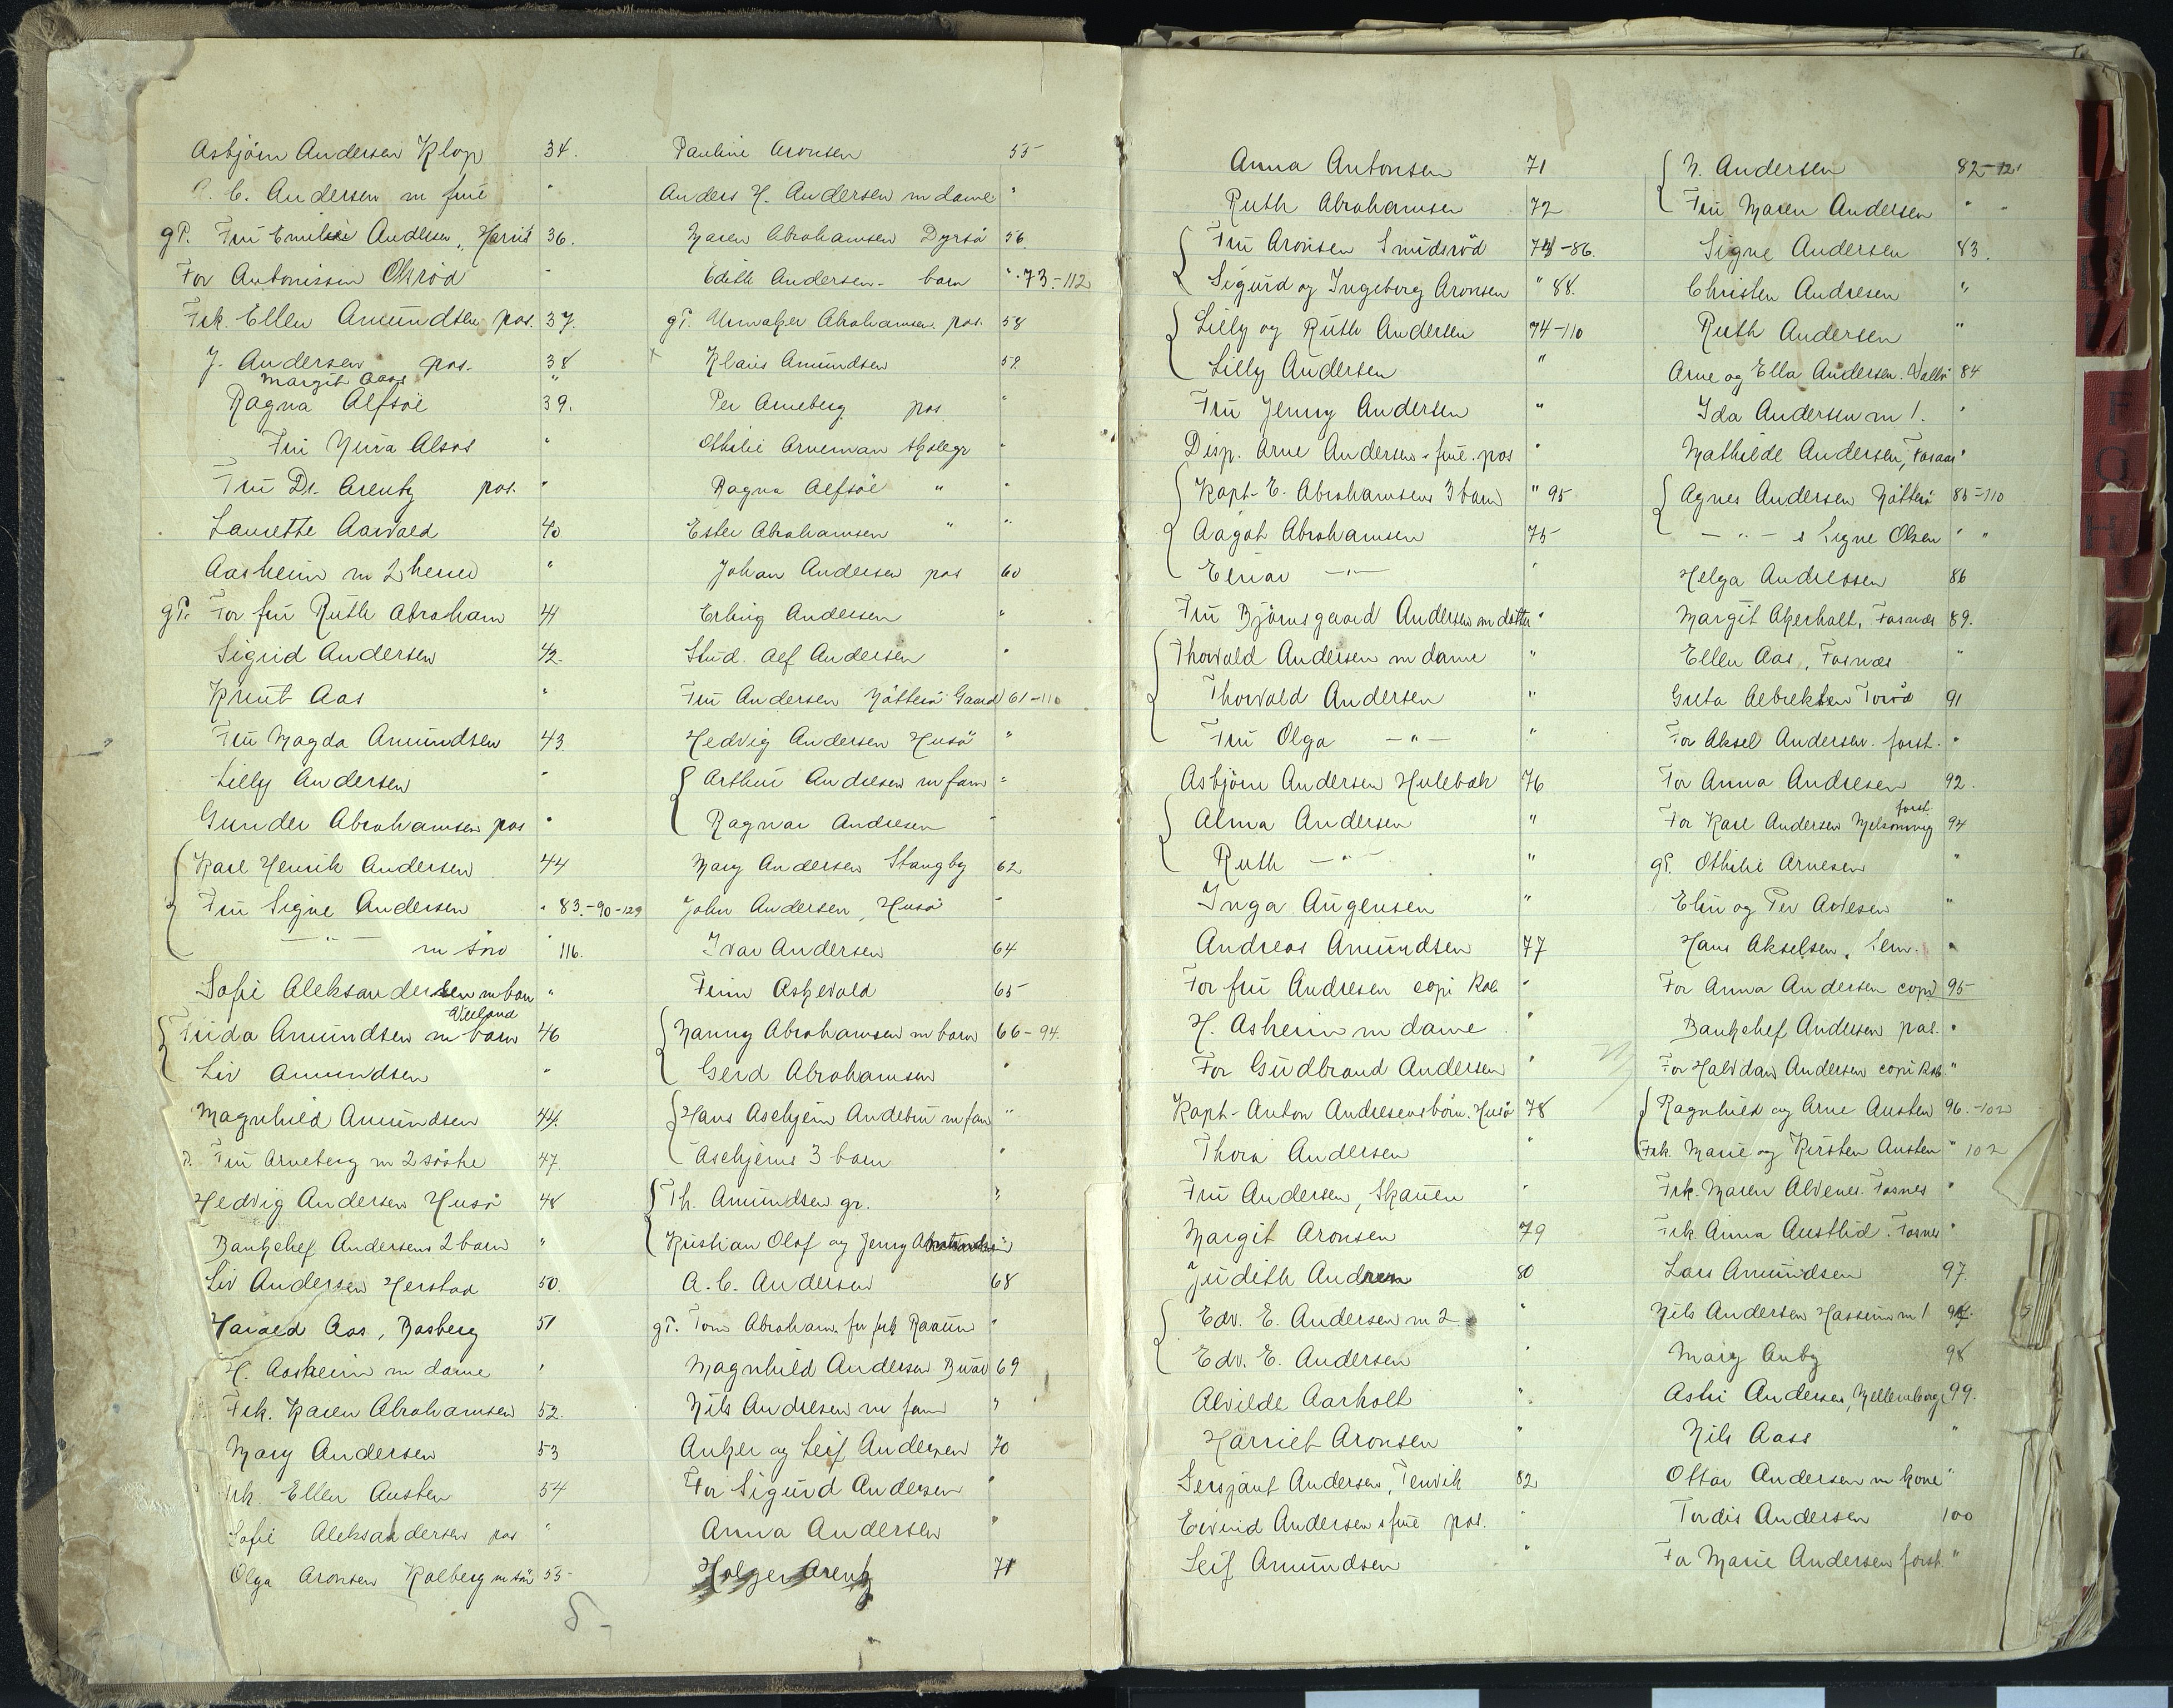 Asbjörn Andersen Klop 34.
C. Andersen m frue "
gP. Fru Emilie Andersen, 36.
For Antonissen Olsröd "
Frk. Ellen Amundsen pos. 37.
J. Andersen pos. 38
Margit Aass "
Ragna Alfsöe 39.
Fru Alsos "
Fru Dr. Arentz pos. "
Laurette Aarvold 40
Aasheim m 2 herrer "
gP. For fru Ruth Abraham 41
Sigrid Andersen 42.
Knut Aas "
Fru Magda Amundsen 43
Lilly Andersen "
Gunder Abrahamsen pos "
Karl Henrik Andersen 44
Fru Signe Andersen " 83.-90-129
— " — m sön " 116.
Sofie Aleksandersen m barn "
Frida Amundsen m barn 46
Liv Amundsen "
Magnhild Amundsen 44.
P. Fru Arneberg m 2 söstre 47.
Hedvig Andersen Husö 48
Bankchef Andersens 2 barn "
Liv Andersen Herstad 50.
Harald Aas, Basberg 51
H. Aasheim m dame "
Frk. Karen Abrahamsen 52.
Mary Andersen 53
Frk. Ellen Austen 54
Sofie Aleksandersen pos "
Olga Aronsen Kolberg m sön 55-
5-
Pauline Aronsen 55
Anders H. Andersen m dame "
Maren Abrahamsen Dyrsö 56.
Edith Andersen - barn " 73.-112
gP. Abrahamsen pos. 58
Klaus Amundsen 59.
Per Arneberg pos "
Othilie Arneman skolegr "
Ragna Alfsöe " "
Ester Abrahamsen " "
Johan Andersen pos 60
Erling Andersen "
Stud. Alf Andersen "
Fru Andersen Nötterö Gaard 61-110
Hedvig Andersen Husö "
Arthur Andresen m fam "
Ragnar Andresen "
Mary Andersen Stangby 62
John Andersen, Husö "
Ivar Andersen 64
Finn Askevold 65
Nanny Abrahamsen m barn 66-94.
Gerd Abrahamsen "
Hans Aschjem Andebu m fam "
Aschjems 3 barn "
Th. Amundsen gr. "
Kristian Olaf og Jenny
A. C. Andersen 68
gP. Tom Abraham. for frk Raaum "
Magnhild Andersen 69
Nils Andresen m fam "
Anker og Leif Andersen 70
For Sigurd Andersen "
Anna Andersen "
Holger Arentz 71
Anna Antonsen 71
Ruth Abrahamsen 72
Fru Aronsen Smidsröd 73-86.
Sigurd og Ingeborg Aronsen " 88.
Lilly og Ruth Andersen 74-110
Lilly Andersen "
Fru Jenny Andersen "
Disp. Arne Andersen & frue. pos "
Kapt. E. Abrahamsens 3 barn " 95
Aagot Abrahamsen 75
Einar — " — "
Fru Bjørnsgaard Andersen m datter "
Thorvald Andersen m dame "
Thorvald Andersen "
Fru Olga — " — "
Asbjörn Andersen Hulebak 76
Alma Andersen "
Ruth — " — "
Inga Augensen "
Andreas Amundsen 77
For fru Andresen copi Kab "
H. Asheim m dame "
For Gudbrand Andersen "
Kapt. Anton Andresens börn. Husö 78
Thora Andersen "
Fru Andersen, Skauen "
Margit Aronsen 79
Judith Andersen 80
Edv. E. Andersen m 2. "
Edv. E. Andersen "
Alvilde Aarholt "
Harriet Aronsen "
Sersjant Andersen, Tenvik 82
Eivind Andersen & frue pos. "
Leif Amundsen "
N. Andersen 82-121
Fru Maren Andersen " "
Signe Andersen 83.
Christen Andresen "
Ruth Andersen "
Arne og Ella Andersen. Vallö 84
Ida Andersen m 1. "
Mathilde Andersen, "
Agnes Andersen Nötterö 85-110
— " — & Signe Olsen " "
Helga Andressen 86
Margit Akerholt, Fosnæs 89.
Ellen Aas, Fosnæs "
Greta Albrektsen Toröd 91
For Aksel Andersen. forst. "
For Anna Andresen 92.
For Karl Andersen Melsomvig forst. 94
gP. Othilie Arnesen "
Elin og Per Arvesen "
Hans Akselsen, Sem. "
For Anna Andersen copi 95
Bankchef Andersen pos. "
For Halvdan Andersen copi Kab. "
Ragnhild og Arne Austen 96.-102
Frk. Marie og Kirsten Austen " 102
Frk. Maren Alvenes. Fosnes "
Frk. Anna Austlid. Fosnes "
Lars Amundsen 97.
Nils Andersen Hassum m 1 97.
Mary Anby 98
Astri Andersen, Mellemborg 99.
Nils Aass "
Ottar Andersen m kone "
Tordis Andersen 100
Fr Marie Andersen forst "
F
G
H